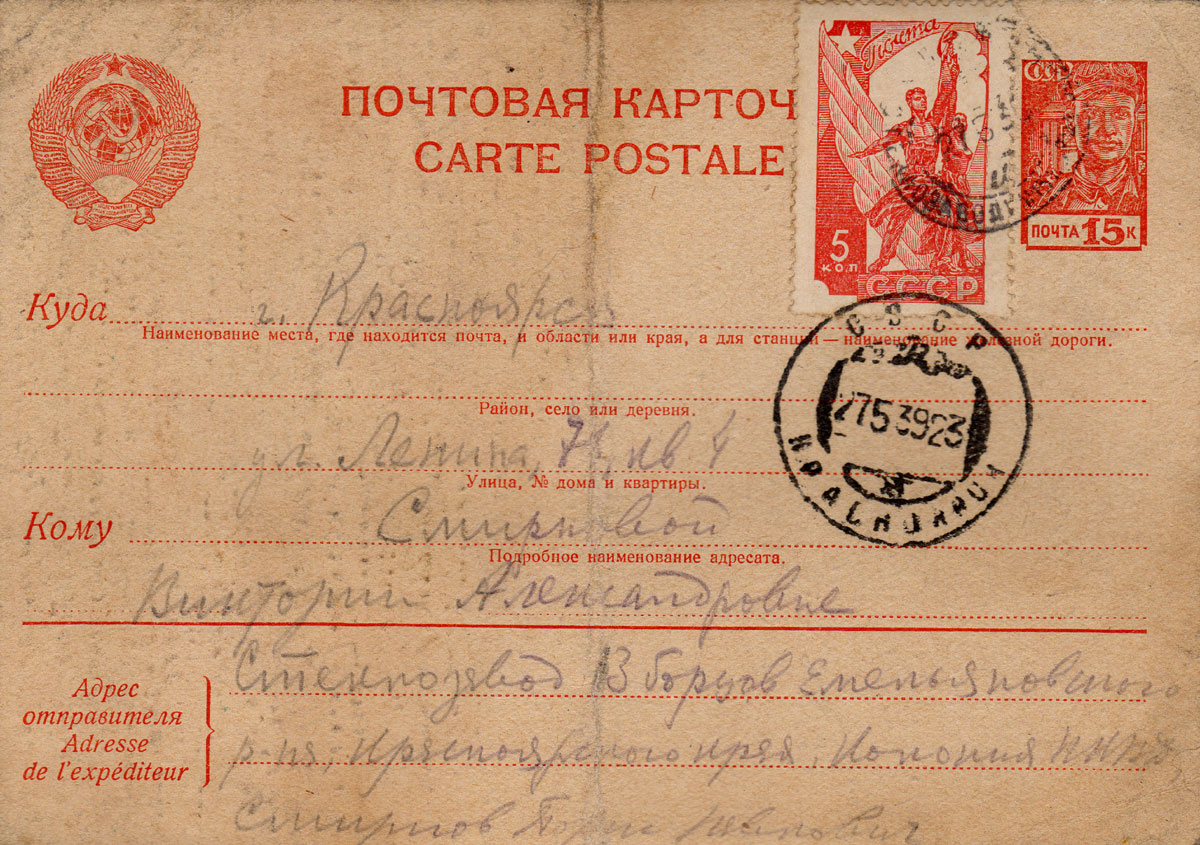 ПОЧТОВАЯ КАРТОЧ
CARTE POSTALE
Почта
5
КОП
СССР
СССР
ПОЧТА 15 К
Куда г. Красноярск
Наименование места, где находится почта, и области или края, а для станции — наименование железной дороги.
Район, село или деревня.
ул. Ленина, кв 4
Улица, № дома и квартиры.
Кому Смирновой
Подробное наименование адресата.
Виктории Александровне
СССР
27 5 39 23
КРАСНОЯРСК
Адрес
отправителя
Adresse
de l'expéditeur
Стеклозавод 13 борцов Емельяновского
р-на, Красноярского края, Колония НКВД,
Смирнов Иванович